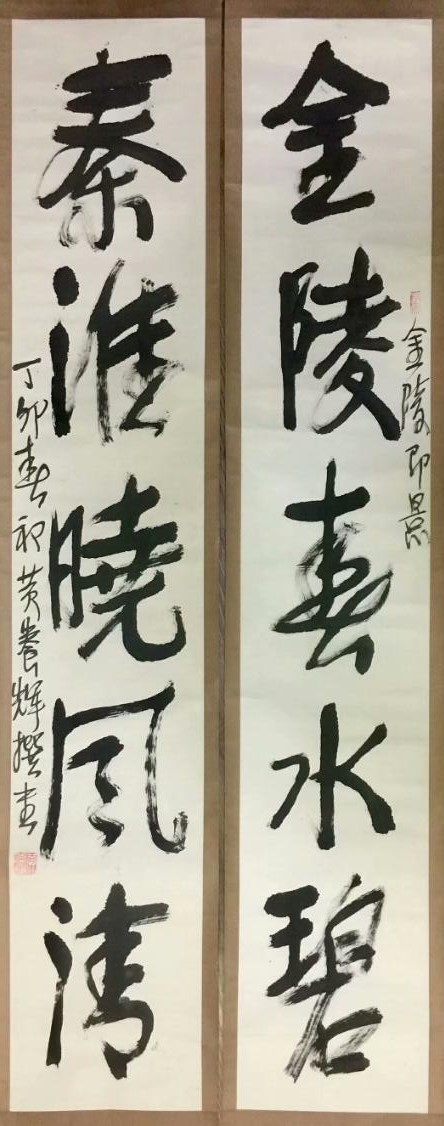 金陵即景
金陵春水碧
秦淮晓风清
丁卯春初黄养辉撰书